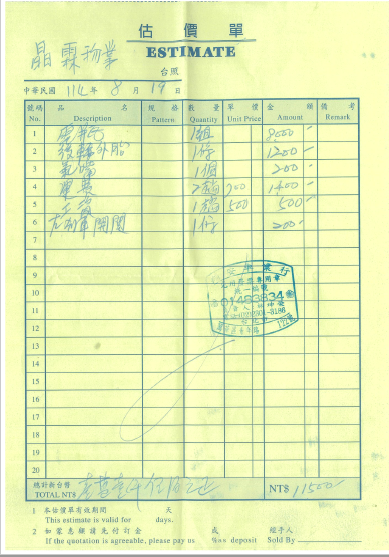 估價單
ESTIMATE
晶霖物業
台照
中華民國 114 年 8 月 19 日
號碼 品名 規格 數量 單價 金額 備考
No. Description Pattern Quantity Unit Price Amount Remark
1 1組 8000
2 後輪外胎 1條 1200
3 氣嘴 1個 200
4 2 700 1400
5 工資 1 500 500
6 左右軍開關 1 200
7
8
9
10
11
12
13
14
15
16
17
18
19
20
業行
免用統一發票專用章
統一編號
01483834
總計新台幣 壹萬壹仟伍佰元正 NT$ 11500
TOTAL NT$
1 本估價單有效期間 天
This estimate is valid for days.
2 如蒙惠顧請先付訂金 成 經手人
If the quotation is agreeable, please pay us % as deposit Sold By